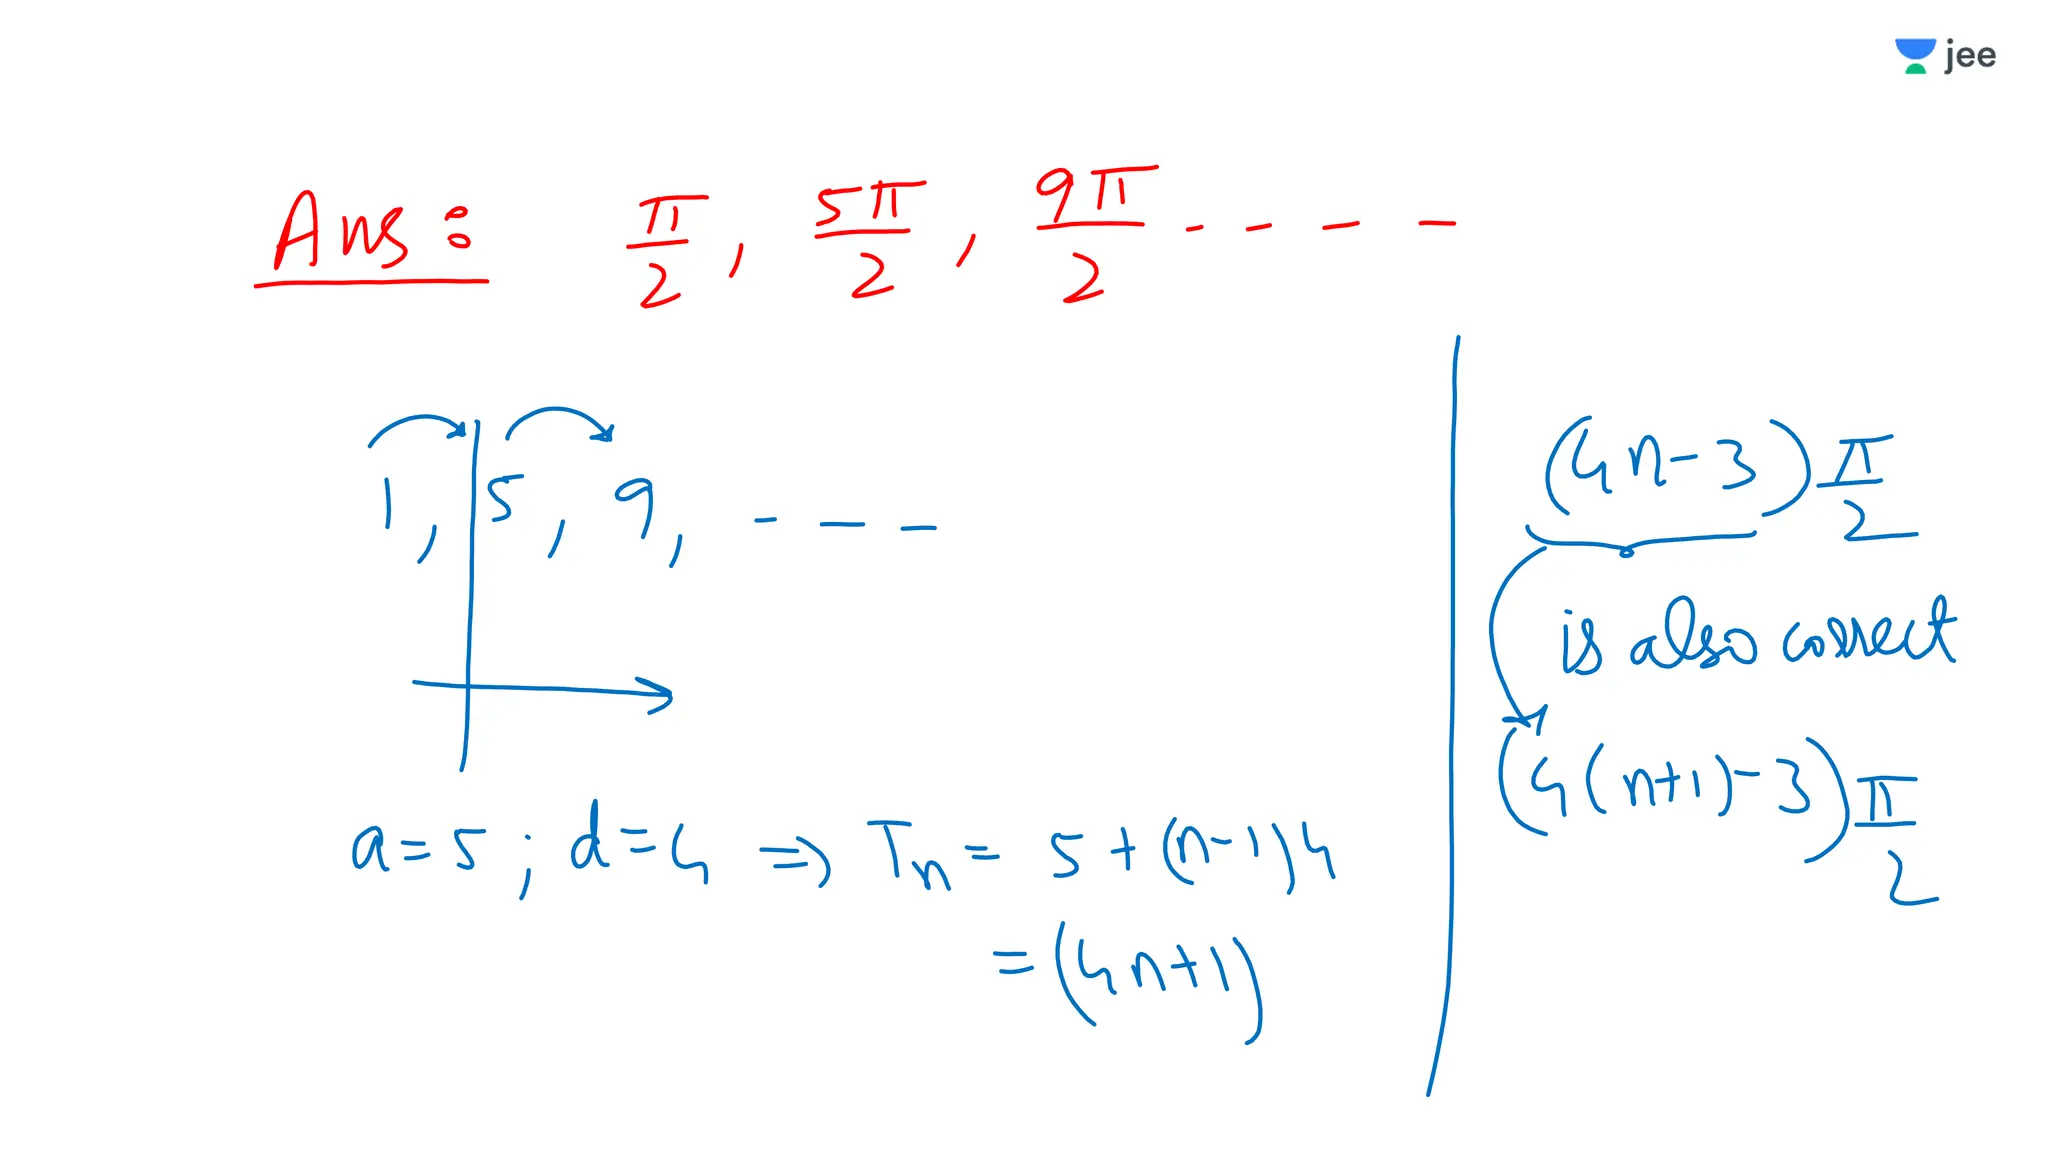 jee
Ans: π/2, 5π/2, 9π/2 - - - -
1, 5, 9, - - -
a = 5 ; d = 4 ⇒ Tn = 5 + (n-1)4
= (4n+1)
(4n-3) π/2
is also correct
(4(n+1)-3) π/2